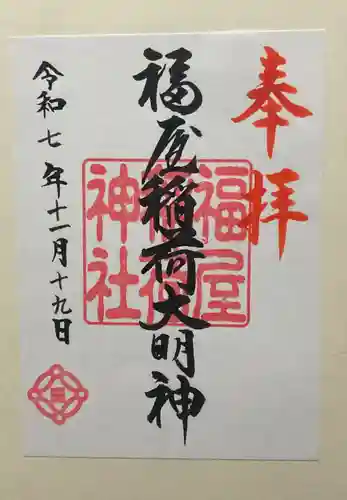 奉拝
福屋稲荷大明神
福屋
稲荷
神社
令和七年十一月十九日